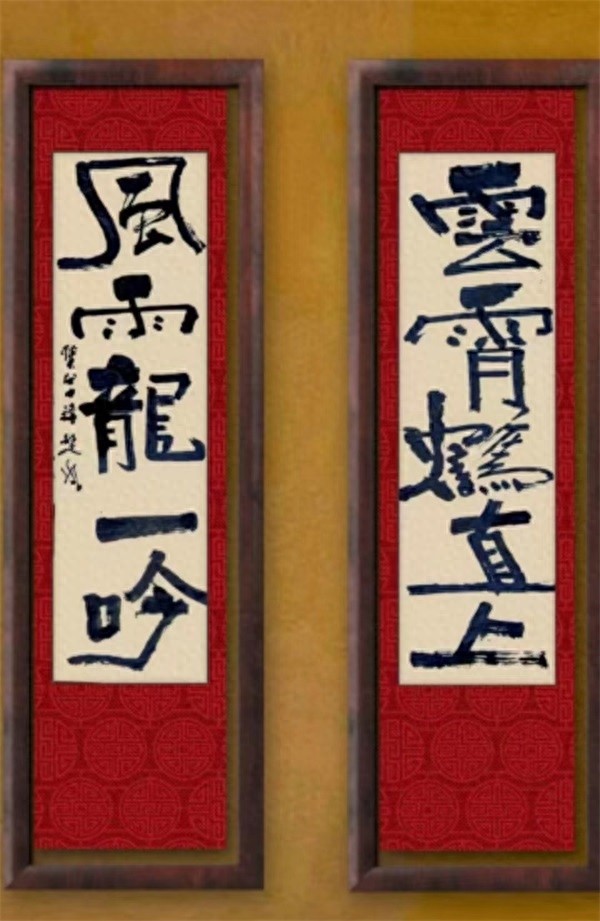 雲霄鶴直上
風雨龍一吟